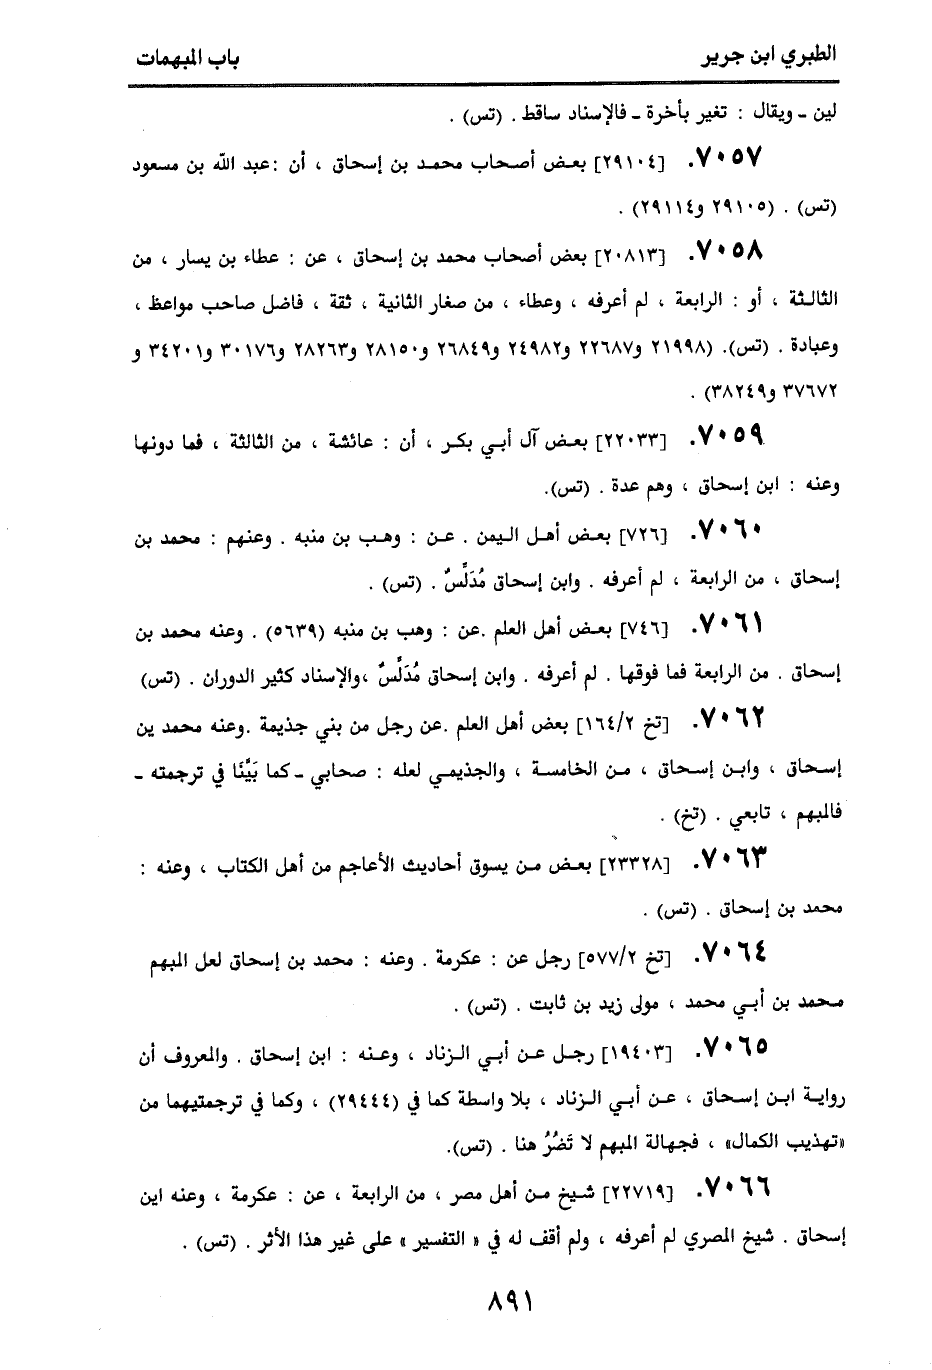 الطبري ابن جرير باب المبهمات
لين ـ ويقال : تغير بأخرة ـ فالإسناد ساقط . (تس) .
٧٠٥٧. [٢٩١٠٤] بعض أصحاب محمد بن إسحاق ، أن :عبد الله بن مسعود
(تس) . (٢٩١٠٥ و٢٩١١٤) .
٧٠٥٨. [٢٠٨١٣] بعض أصحاب محمد بن إسحاق ، عن : عطاء بن يسار ، من
الثالثة ، أو : الرابعة ، لم أعرفه ، وعطاء ، من صغار الثانية ، ثقة ، فاضل صاحب مواعظ ،
وعبادة . (تس). (٢١٩٩٨ و٢٢٦٨٧ و٢٤٩٨٢ و٢٦٨٤٩ و٢٨١٥٠ و٢٨٢٦٣ و٣٠١٧٦ و٣٤٢٠١ و
٣٧٦٧٢ و٣٨٢٤٩) .
٧٠٥٩. [٢٢٠٣٣] بعض آل أبي بكر ، أن : عائشة ، من الثالثة ، فما دونها
وعنه : ابن إسحاق ، وهم عدة . (تس).
٧٠٦٠. [٧٢٦] بعض أهل اليمن . عن : وهب بن منبه . وعنهم : محمد بن
إسحاق ، من الرابعة ، لم أعرفه . وابن إسحاق مُدَلِّسٌ . (تس) .
٧٠٦١. [٧٤٦] بعض أهل العلم .عن : وهب بن منبه (٥٦٣٩) . وعنه محمد بن
إسحاق . من الرابعة فما فوقها . لم أعرفه . وابن إسحاق مُدَلِّسٌ ،والإسناد كثير الدوران . (تس)
٧٠٦٢. [تخ ١٦٤/٢] بعض أهل العلم .عن رجل من بني جذيمة .وعنه محمد بن
إسحاق ، وابن إسحاق ، من الخامسة ، والجذيمي لعله : صحابي ـ كما بَيَّنَا في ترجمته ـ
فالمبهم ، تابعي . (تخ) .
٧٠٦٣. [٢٣٣٢٨] بعض من يسوق أحاديث الأعاجم من أهل الكتاب ، وعنه :
محمد بن إسحاق . (تس) .
٧٠٦٤. [تخ ٥٧٧/٢] رجل عن : عكرمة . وعنه : محمد بن إسحاق لعل المبهم
محمد بن أبي محمد ، مولى زيد بن ثابت . (تس) .
٧٠٦٥. [١٩٤٠٣] رجل عن أبي الزناد ، وعنه : ابن إسحاق . والمعروف أن
رواية ابن إسحاق ، عن أبي الزناد ، بلا واسطة كما في (٢٩٤٤٤) ، وكما في ترجمتيهما من
«تهذيب الكمال» ، فجهالة المبهم لا تَضُرُ هنا . (تس).
٧٠٦٦. [٢٢٧١٩] شيخ من أهل مصر ، من الرابعة ، عن : عكرمة ، وعنه ابن
إسحاق . شيخ المصري لم أعرفه ، ولم أقف له في « التفسير » على غير هذا الأثر . (تس) .
٨٩١